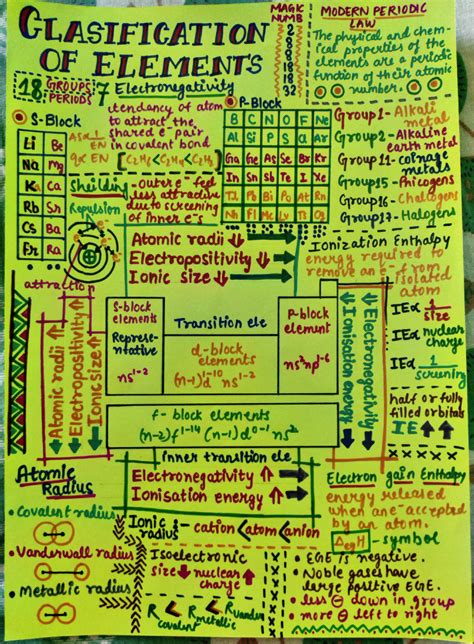 CLASIFICATION
OF ELEMENTS
MAGIC
NUMB
2
8
8
18
18
32
MODERN PERIODIC
LAW
The physical and chem-
ical properties of the
elements are a periodic
function of their atomic
number.
18 GROUPS 7
PERIODS
Electronegativity
tendancy of atom
to attract the
shared e⁻ pair
in covalent bond
S-Block
Li Be
Na Mg
K Ca
Rb Sr
Cs Ba
Fr Ra
P-Block
B C N O F Ne
Al Si P S Cl Ar
Ga Ge As Se Br Kr
In Sn Sb Te I Xe
Tl Pb Bi Po At Rn
Nh Fl Mc Lv Ts Og
Group1- Alkali
metal
Group2- Alkaline
earth metal
Group11- coinage
metals
Group15- Phicogens
Group16- Chalcogens
Group17- Halogens
Sheilding - outer e⁻ feel
less attractive
due to screening
of inner e⁻s
Repulsion
attraction
Atomic radii ↓
Electropositivity ↓
Ionic size ↓
Ionization Enthalpy
energy required to
remove an e⁻ from
isolated
atom
IE∝ 1/size
IE∝ nuclear
charge
IE∝ 1/screening
half or fully
filled orbitals
IE ↑
Atomic radii ↑
Electropositivity ↑
Ionic size ↑
S-block
elements
Represe-
ntative
ns¹⁻²
Transition ele
d-block
elements
(n-1)d¹⁻¹⁰ ns¹⁻²
P-block
element
ns²np¹⁻⁶
Ionisation energy ↓
Electronegativity ↓
f- block elements
(n-2)f¹⁻¹⁴ (n-1)d⁰⁻¹ ns²
inner transition ele
Electronegativity ↑
Ionisation energy ↑
Atomic
Radius
• Covalent radius
• Vanderwall radius
• Metallic radius
Ionic :- cation < atom < anion
radius
Isoelectronic
size ↓ nuclear ↑
charge
R covalent < R metallic < R vanderwall
Electron gain Enthalpy
energy released
when an e⁻ accepted
by an atom.
ΔegH - symbol
• EGE is negative.
• Noble gases have
large positive EGE.
• less ⊖ down in group
• more ⊖ left to right